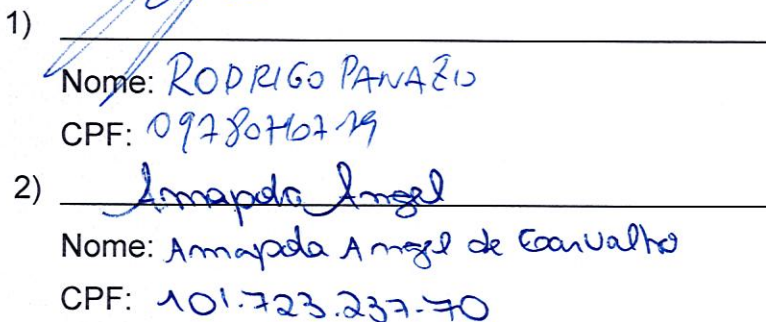 1)
Nome: RODRIGO PANAZIO
CPF: 09780710719
2) Amapola Angel
Nome: Amapola Angel de Carvalho
CPF: 101.723.237-70